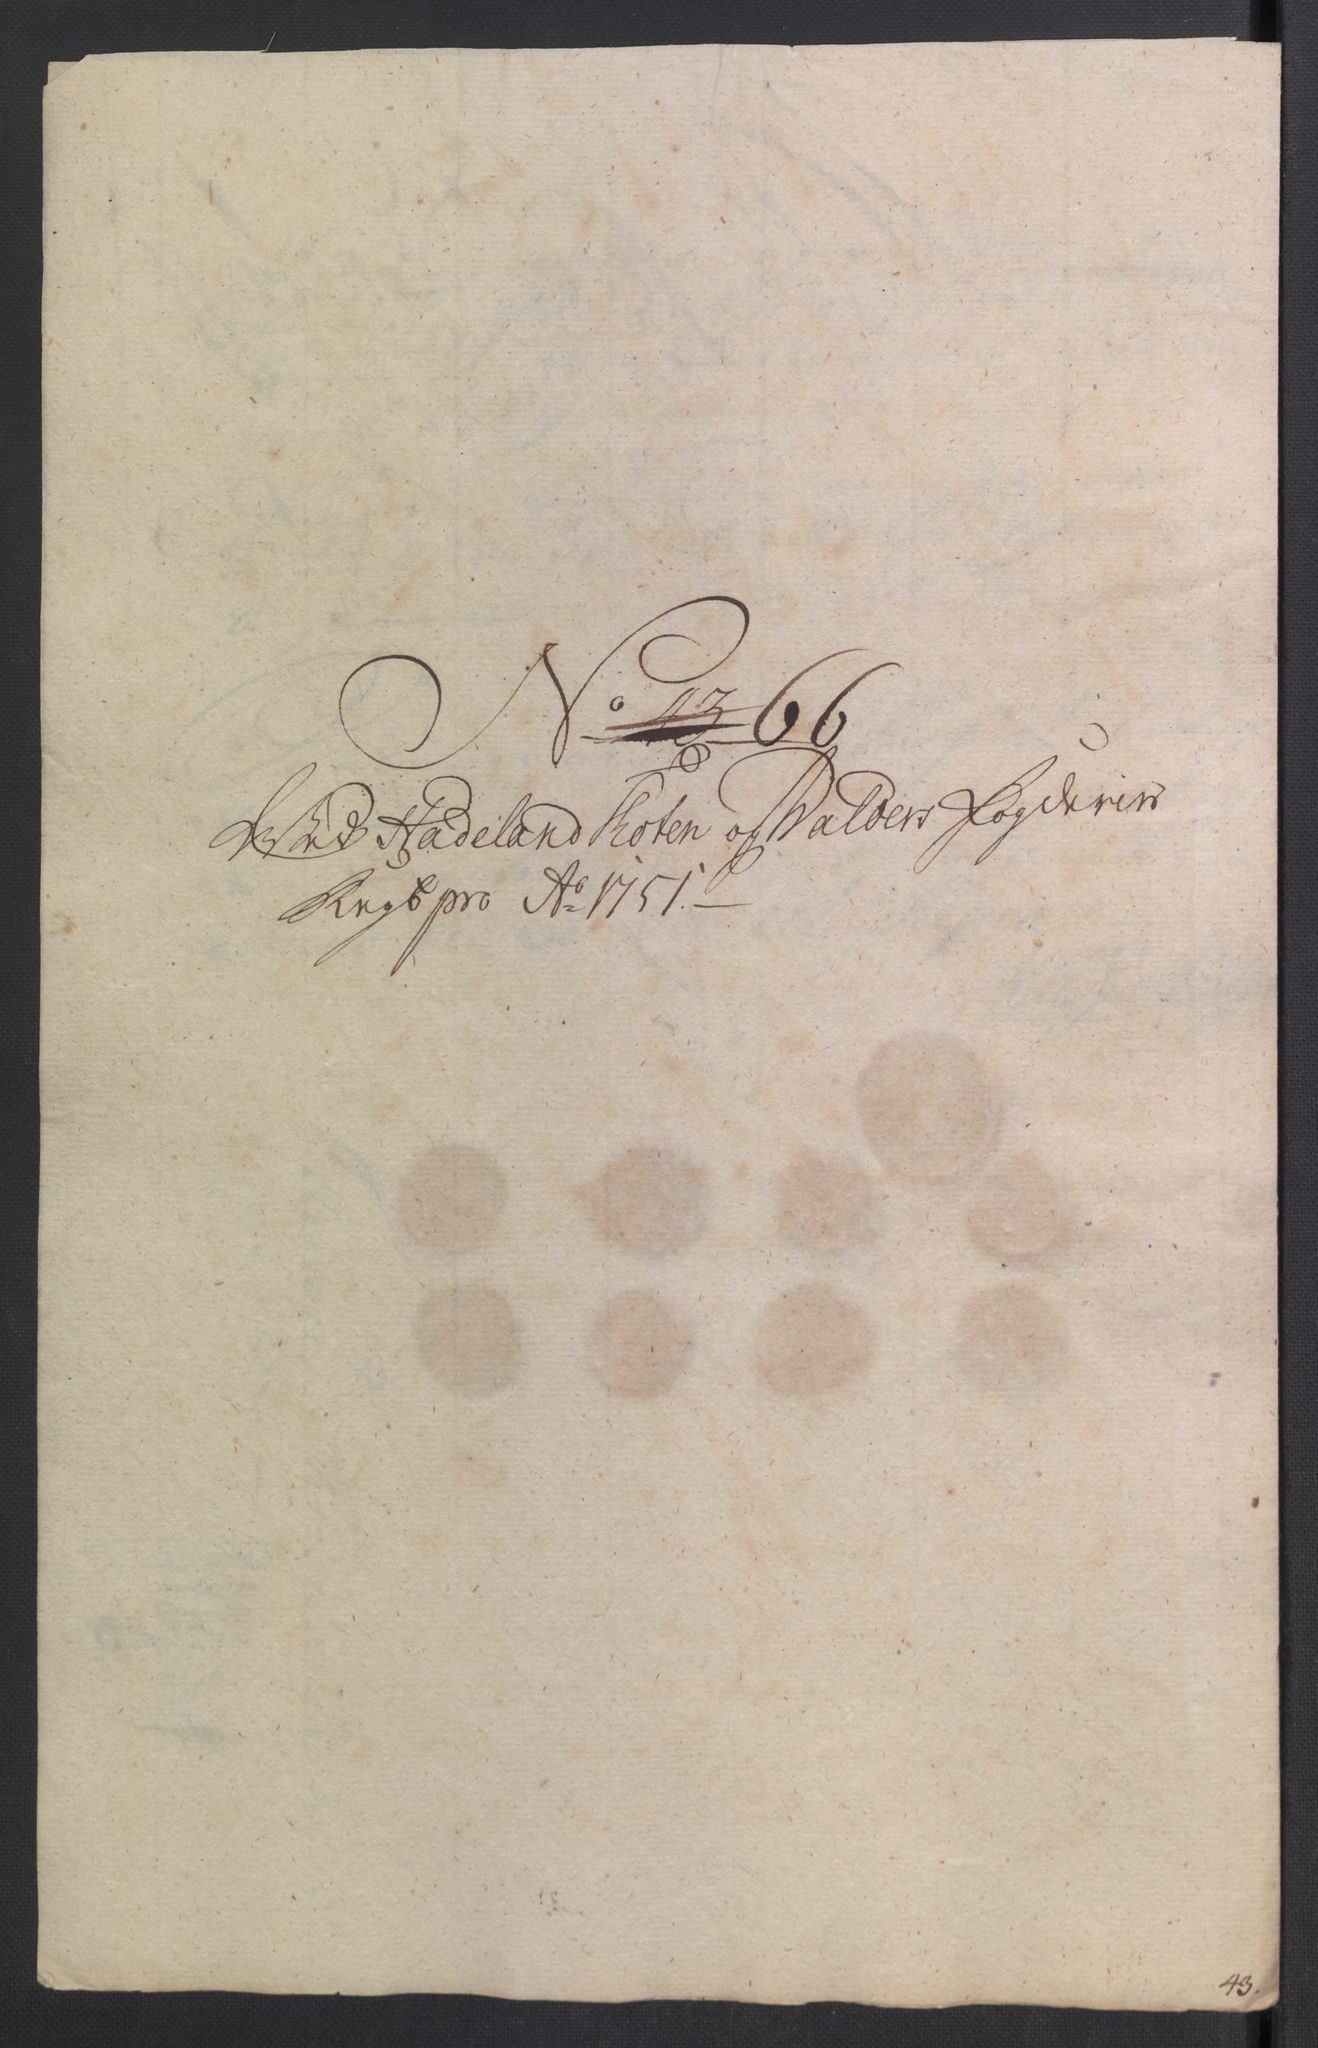 No 43 66
Ved Hadeland Toten og Valders Fogderiers
Regsk pro Ao 1751.
43.